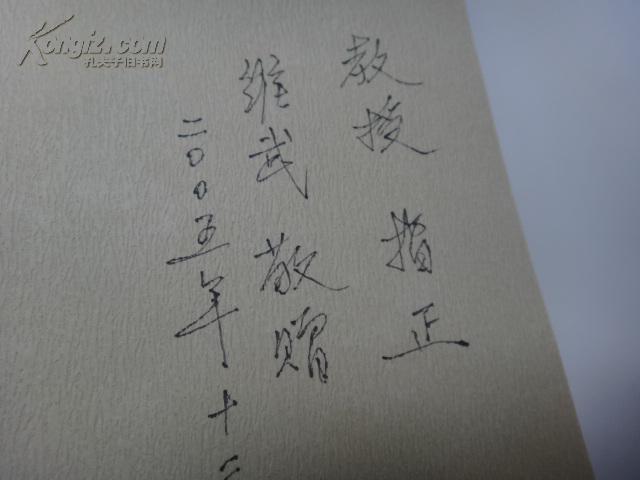 教授 指正
维武 敬赠
二00五年十二
Kongfz.com
孔夫子旧书网